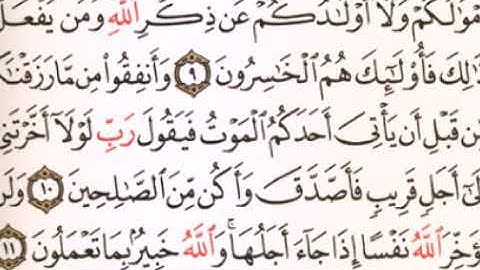 مْوَٰلُكُمْ وَلَآ أَوْلَٰدُكُمْ عَن ذِكْرِ ٱللَّهِ وَمَن يَفْعَلْ
ذَٰلِكَ فَأُو۟لَٰٓئِكَ هُمُ ٱلْخَٰسِرُونَ ٩ وَأَنفِقُوا۟ مِن مَّا رَزَقْنَٰ
مِن قَبْلِ أَن يَأْتِىَ أَحَدَكُمُ ٱلْمَوْتُ فَيَقُولَ رَبِّ لَوْلَآ أَخَّرْتَنِى
لَىٰٓ أَجَلٍ قَرِيبٍ فَأَصَّدَّقَ وَأَكُن مِّنَ ٱلصَّٰلِحِينَ ١٠ وَلَن
ؤَخِّرَ ٱللَّهُ نَفْسًا إِذَا جَآءَ أَجَلُهَا ۚ وَٱللَّهُ خَبِيرٌۢ بِمَا تَعْمَلُونَ ١١